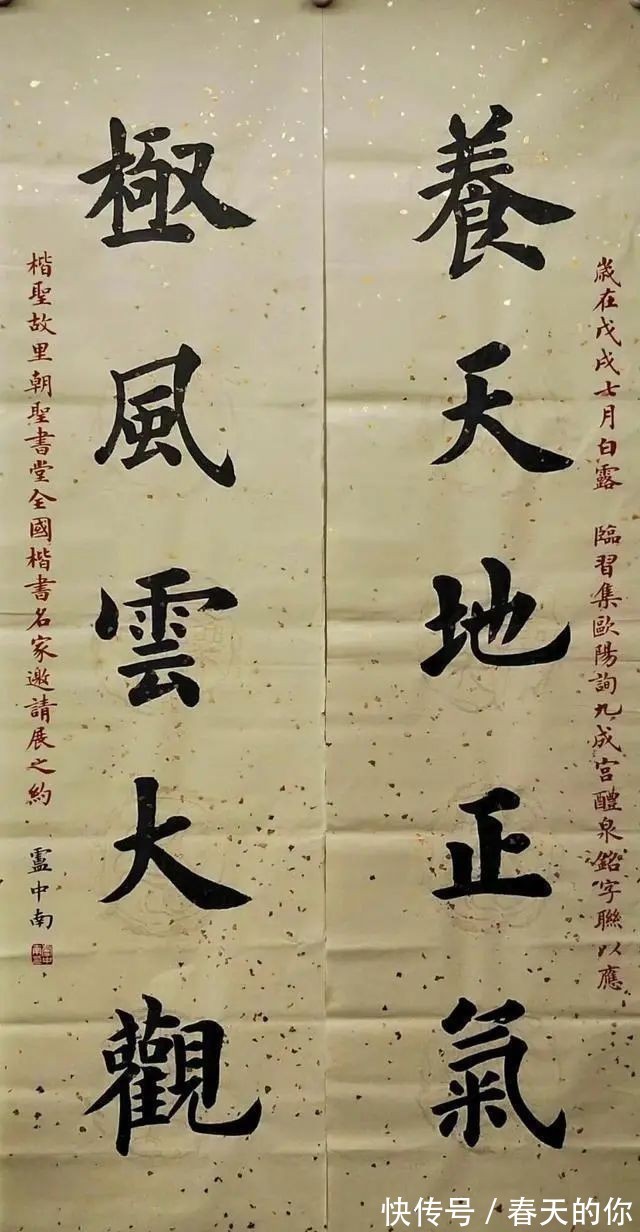 養天地正氣
歲在戊戌七月白露 臨習集歐陽詢九成宮醴泉銘字聯以應
極風雲大觀
楷聖故里朝聖書堂全國楷書名家邀請展之約
盧中南
快传号 / 春天的你